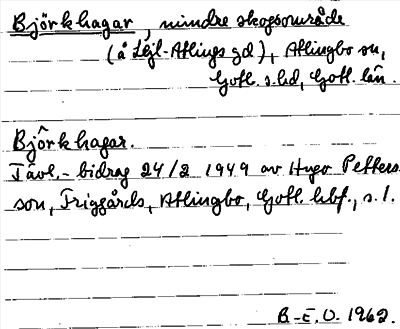 Björkhagar, mindre skogsområde
(å Lejl-Atlings gd), Atlingbo sn,
Gotl. s. hd, Gotl. län.
Björkhagar.
Tävl.-bidrag 24/2 1949 av Hugo Petters-
son, Friggårds, Atlingbo, Gotl. hbf., s. 1.
B.-E. O. 1962.